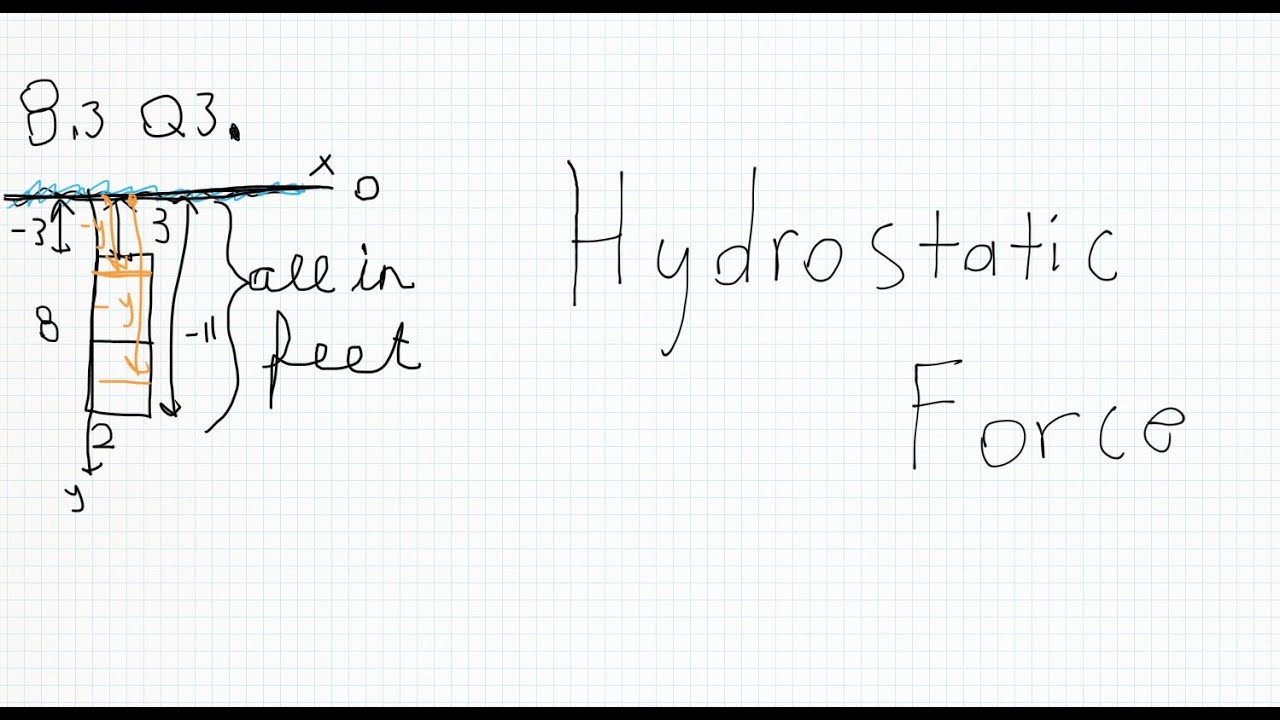 8.3 Q3.
x
0
-3
-y
3
all in
feet
8
-y
-11
2
y
Hydrostatic
Force